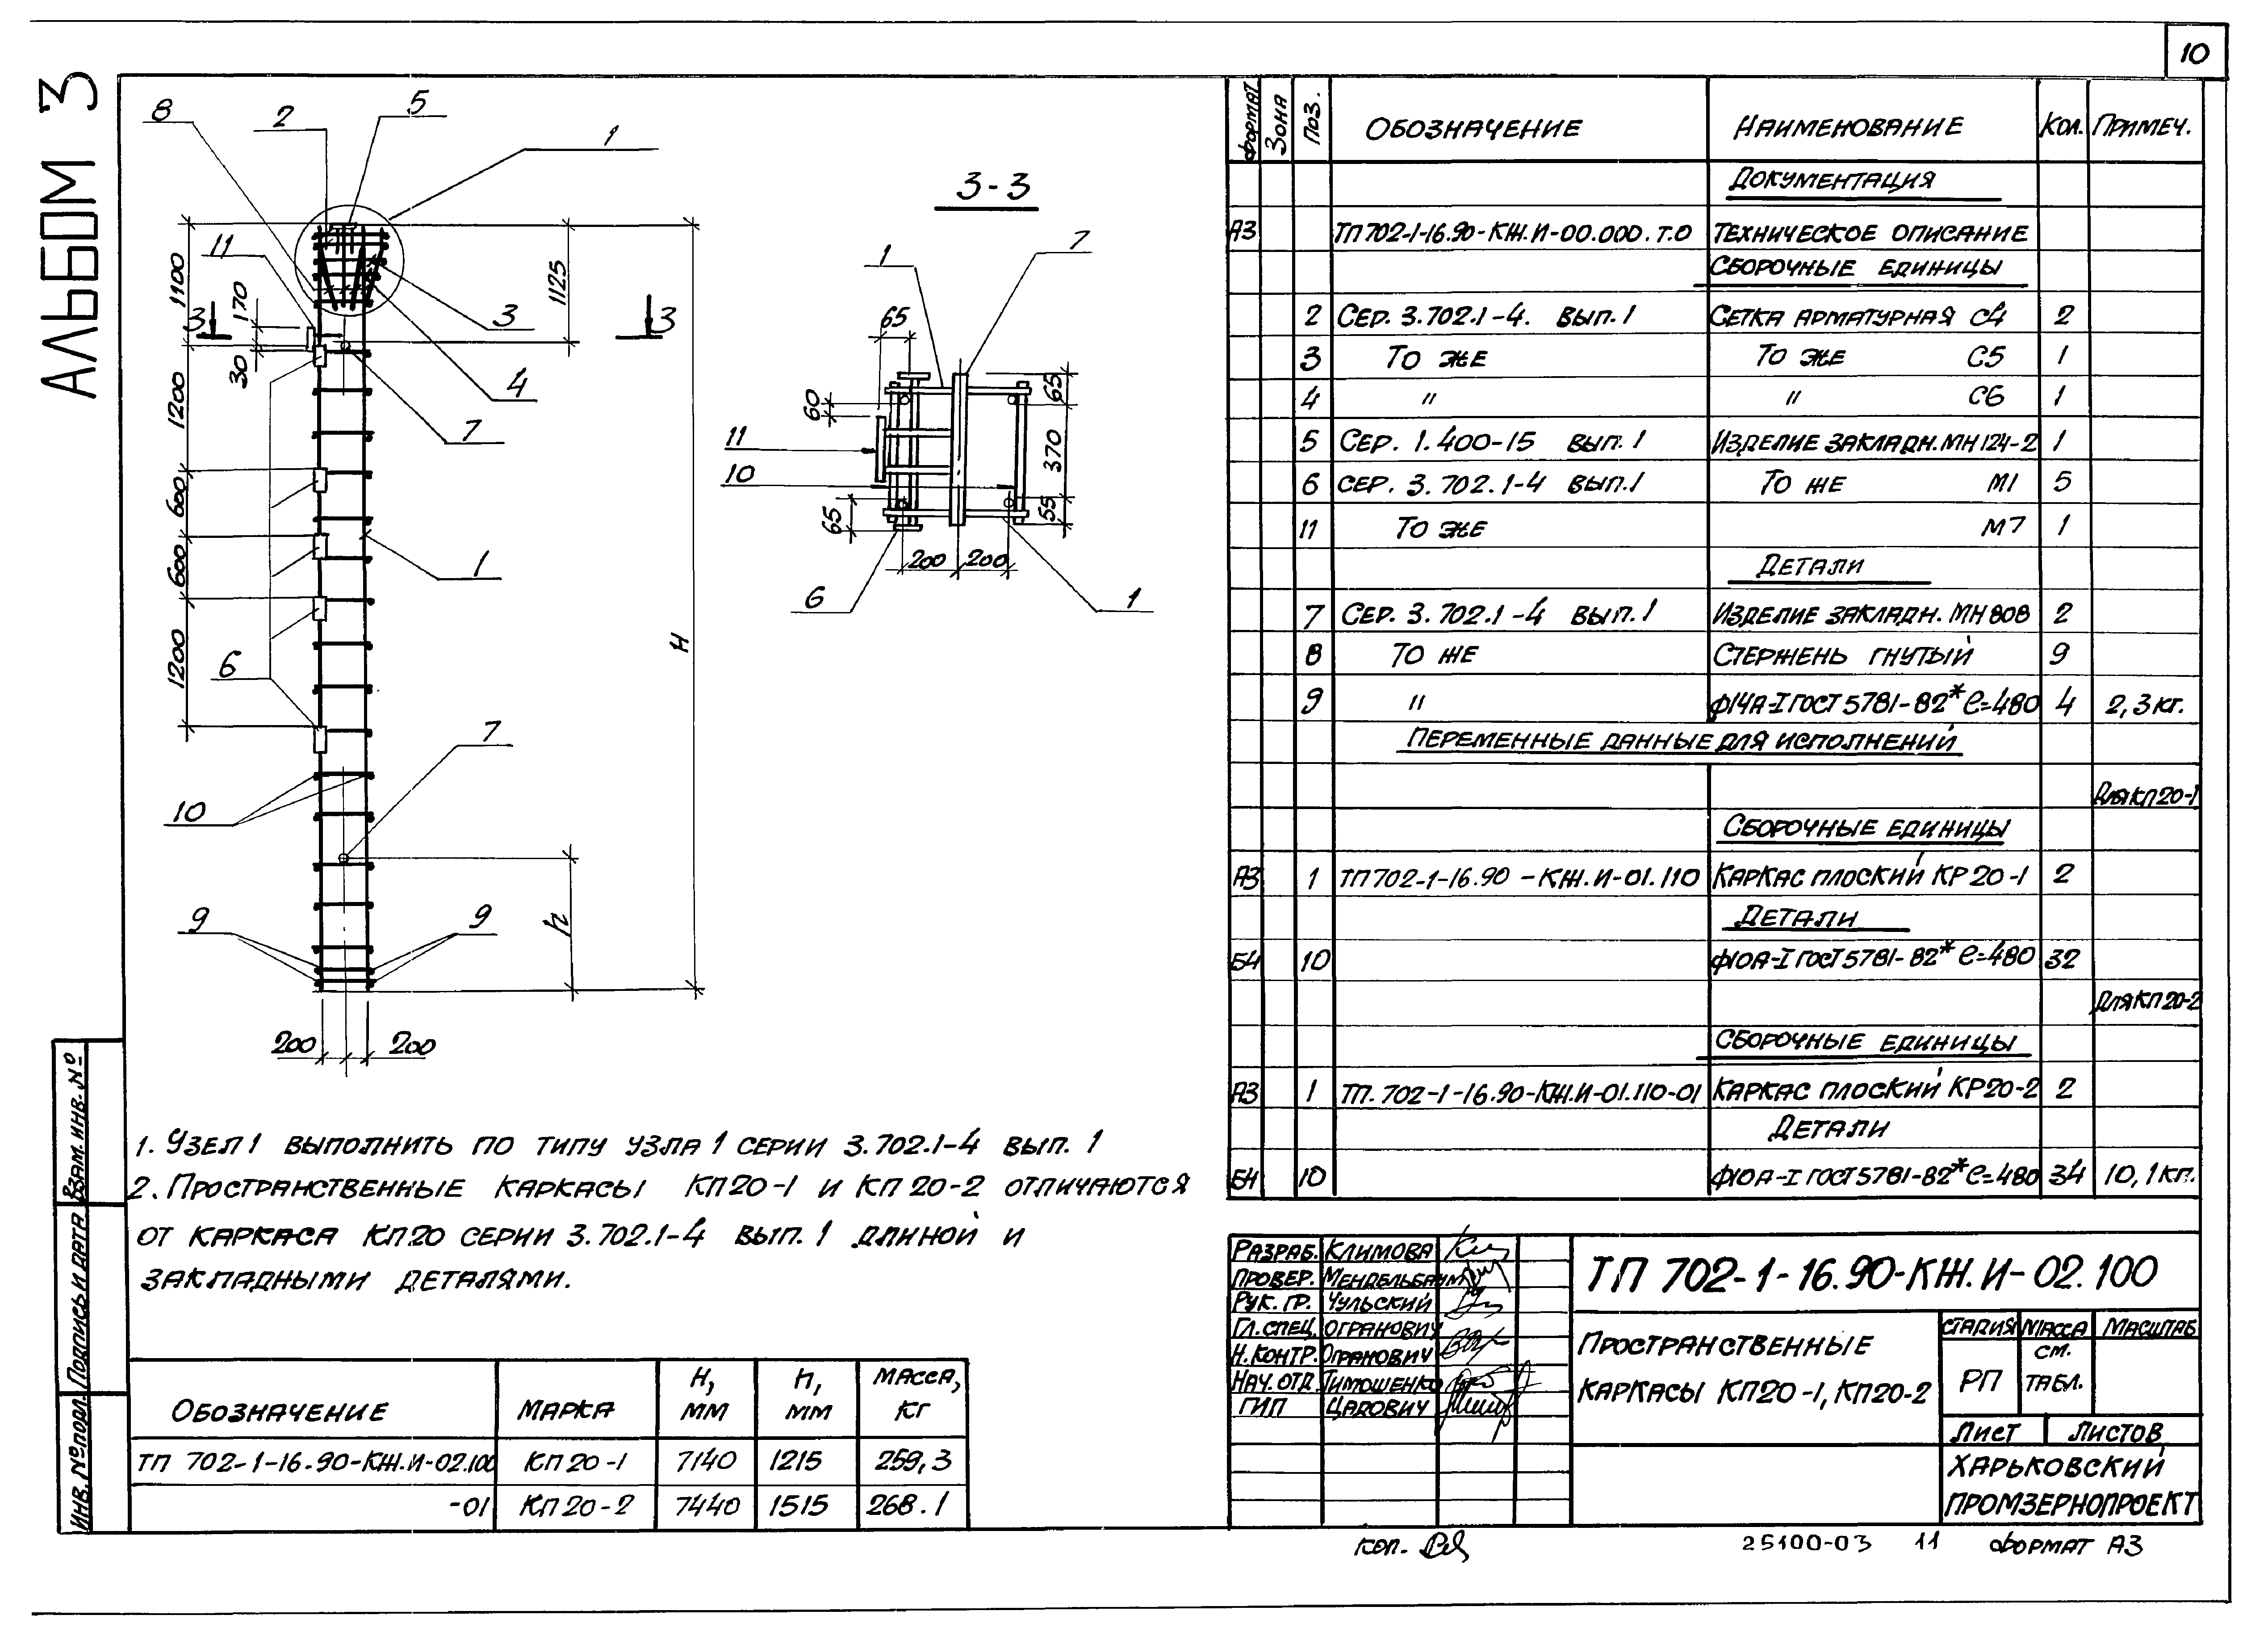 10
АЛЬБОМ 3
8
2
5
1
11
3
4
7
3 3
1100
170
30
1200
600
600
1200
1125
H
h
1
6
7
10
9 9
200 200
3-3
1
7
65
60
65
370
55
65
11
10
200 200
6
1
1. УЗЕЛ 1 ВЫПОЛНИТЬ ПО ТИПУ УЗЛА 1 СЕРИИ 3.702.1-4 ВЫП. 1
2. ПРОСТРАНСТВЕННЫЕ КАРКАСЫ КП20-1 И КП20-2 ОТЛИЧАЮТСЯ
ОТ КАРКАСА КП20 СЕРИИ 3.702.1-4 ВЫП. 1 ДЛИНОЙ И
ЗАКЛАДНЫМИ ДЕТАЛЯМИ.
ОБОЗНАЧЕНИЕ МАРКА H, ММ h, ММ МАССА, КГ
ТП 702-1-16.90-КЖ.И-02.100 КП20-1 7140 1215 259,3
-01 КП20-2 7440 1515 268.1
ФОРМАТ ЗОНА ПОЗ. ОБОЗНАЧЕНИЕ НАИМЕНОВАНИЕ КОЛ. ПРИМЕЧ.
ДОКУМЕНТАЦИЯ
А3 ТП702-1-16.90-КЖ.И-00.000.Т.О ТЕХНИЧЕСКОЕ ОПИСАНИЕ
СБОРОЧНЫЕ ЕДИНИЦЫ
2 СЕР. 3.702.1-4. ВЫП. 1 СЕТКА АРМАТУРНАЯ С4 2
3 ТО ЖЕ ТО ЖЕ С5 1
4 " " С6 1
5 СЕР. 1.400-15 ВЫП. 1 ИЗДЕЛИЕ ЗАКЛАДН. МН124-2 1
6 СЕР. 3.702.1-4 ВЫП.1 ТО ЖЕ М1 5
11 ТО ЖЕ М7 1
ДЕТАЛИ
7 СЕР. 3.702.1-4 ВЫП. 1 ИЗДЕЛИЕ ЗАКЛАДН. МН808 2
8 ТО ЖЕ СТЕРЖЕНЬ ГНУТЫЙ 9
9 " Ф14А-I ГОСТ 5781-82* ℓ=480 4 2,3 кг.
ПЕРЕМЕННЫЕ ДАННЫЕ ДЛЯ ИСПОЛНЕНИЙ
ДЛЯ КП20-1
СБОРОЧНЫЕ ЕДИНИЦЫ
А3 1 ТП702-1-16.90-КЖ.И-01.110 КАРКАС ПЛОСКИЙ КР20-1 2
ДЕТАЛИ
Б4 10 Ф10А-I ГОСТ 5781-82* ℓ=480 32
ДЛЯ КП20-2
СБОРОЧНЫЕ ЕДИНИЦЫ
А3 1 ТП.702-1-16.90-КЖ.И-01.110-01 КАРКАС ПЛОСКИЙ КР20-2 2
ДЕТАЛИ
Б4 10 Ф10А-I ГОСТ 5781-82* ℓ=480 34 10,1 кг.
РАЗРАБ. КЛИМОВА
ПРОВЕР. МЕНДЕЛЬБАУМ
РУК. ГР. ЧУЛЬСКИЙ
ГЛ.СПЕЦ. ОГРАНОВИЧ
Н.КОНТР. ОГРАНОВИЧ
НАЧ. ОТД ТИМОШЕНКО
ГИП ЦАДОВИЧ
ТП 702-1-16.90-КЖ.И-02.100
ПРОСТРАНСТВЕННЫЕ
КАРКАСЫ КП20-1, КП20-2
СТАДИЯ МАССА МАСШТАБ
РП СМ. ТАБЛ.
ЛИСТ ЛИСТОВ
ХАРЬКОВСКИЙ
ПРОМЗЕРНОПРОЕКТ
ИНВ.№ подл. ПОДПИСЬ И ДАТА ВЗАМ. ИНВ. №
КОП.
25100-03 11 ФОРМАТ А3